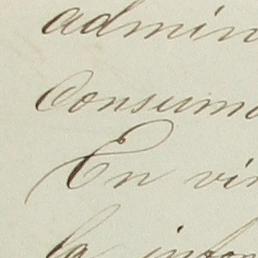 admin
Consumo
En vir
la infor